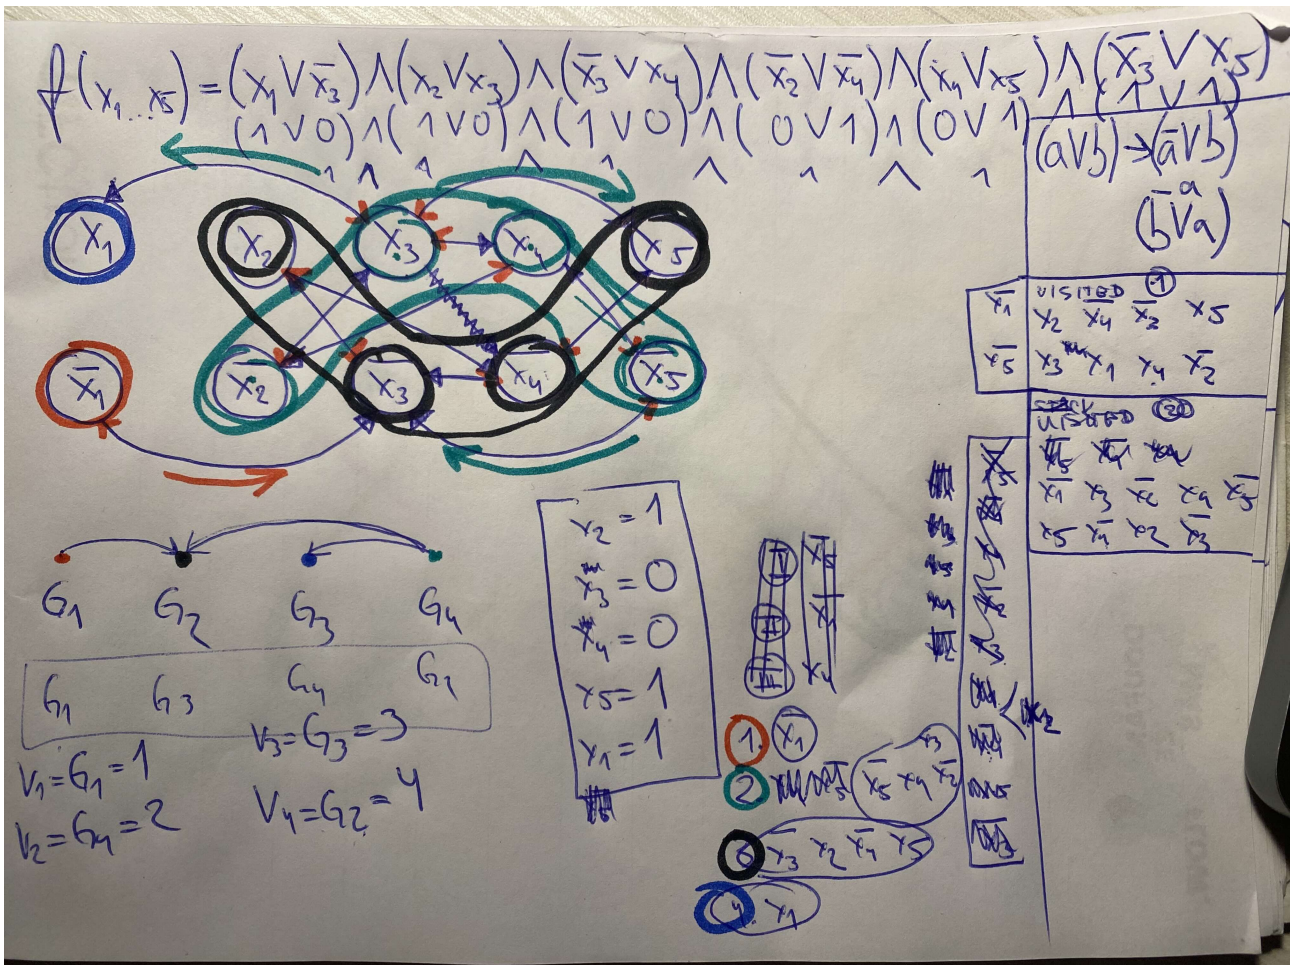 f(x₁...x₅) = (x₁ ∨ x̅₃) ∧ (x₂ ∨ x₃) ∧ (x̅₃ ∨ x₄) ∧ (x̅₂ ∨ x̅₄) ∧ (x₄ ∨ x₅) ∧ (x̅₃ ∨ x₅)
(1 ∨ 0) ∧ (1 ∨ 0) ∧ (1 ∨ 0) ∧ (0 ∨ 1) ∧ (0 ∨ 1) ∧ (1 ∨ 1)
1 ∧ 1 ∧ 1 ∧ 1 ∧ 1
(a ∨ b) → (a̅ ∨ b)
a
(b̅ ∨ a)
x₁ x₂ x₃ x₄ x₅
x̅₁ x̅₂ x̅₃ x̅₄ x̅₅
VISITED 1
x̅₁ x₂ x̅₄ x̅₃ x₅
x̅₅ x₃ x₁ x₄ x̅₂
VISITED 2
x̅₁ x₃ x̅₂ x₄ x̅₅
x₅ x̅₄ x₂ x̅₃
G₁ G₂ G₃ G₄
G₁ G₃ G₄ G₂
V₁ = G₁ = 1
V₂ = G₄ = 2
V₃ = G₃ = 3
V₄ = G₂ = 4
x₂ = 1
x₃ = 0
x₄ = 0
x₅ = 1
x₁ = 1
1. x̅₁
2 x̅₅ x₄ x̅₂ x₃
x̅₃ x₂ x̅₄ x₅
4. x₁